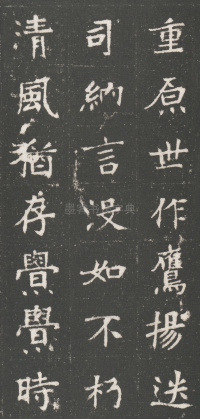 重原世作鷹揚迭
司納言没如不朽
清風猶存亹亹時